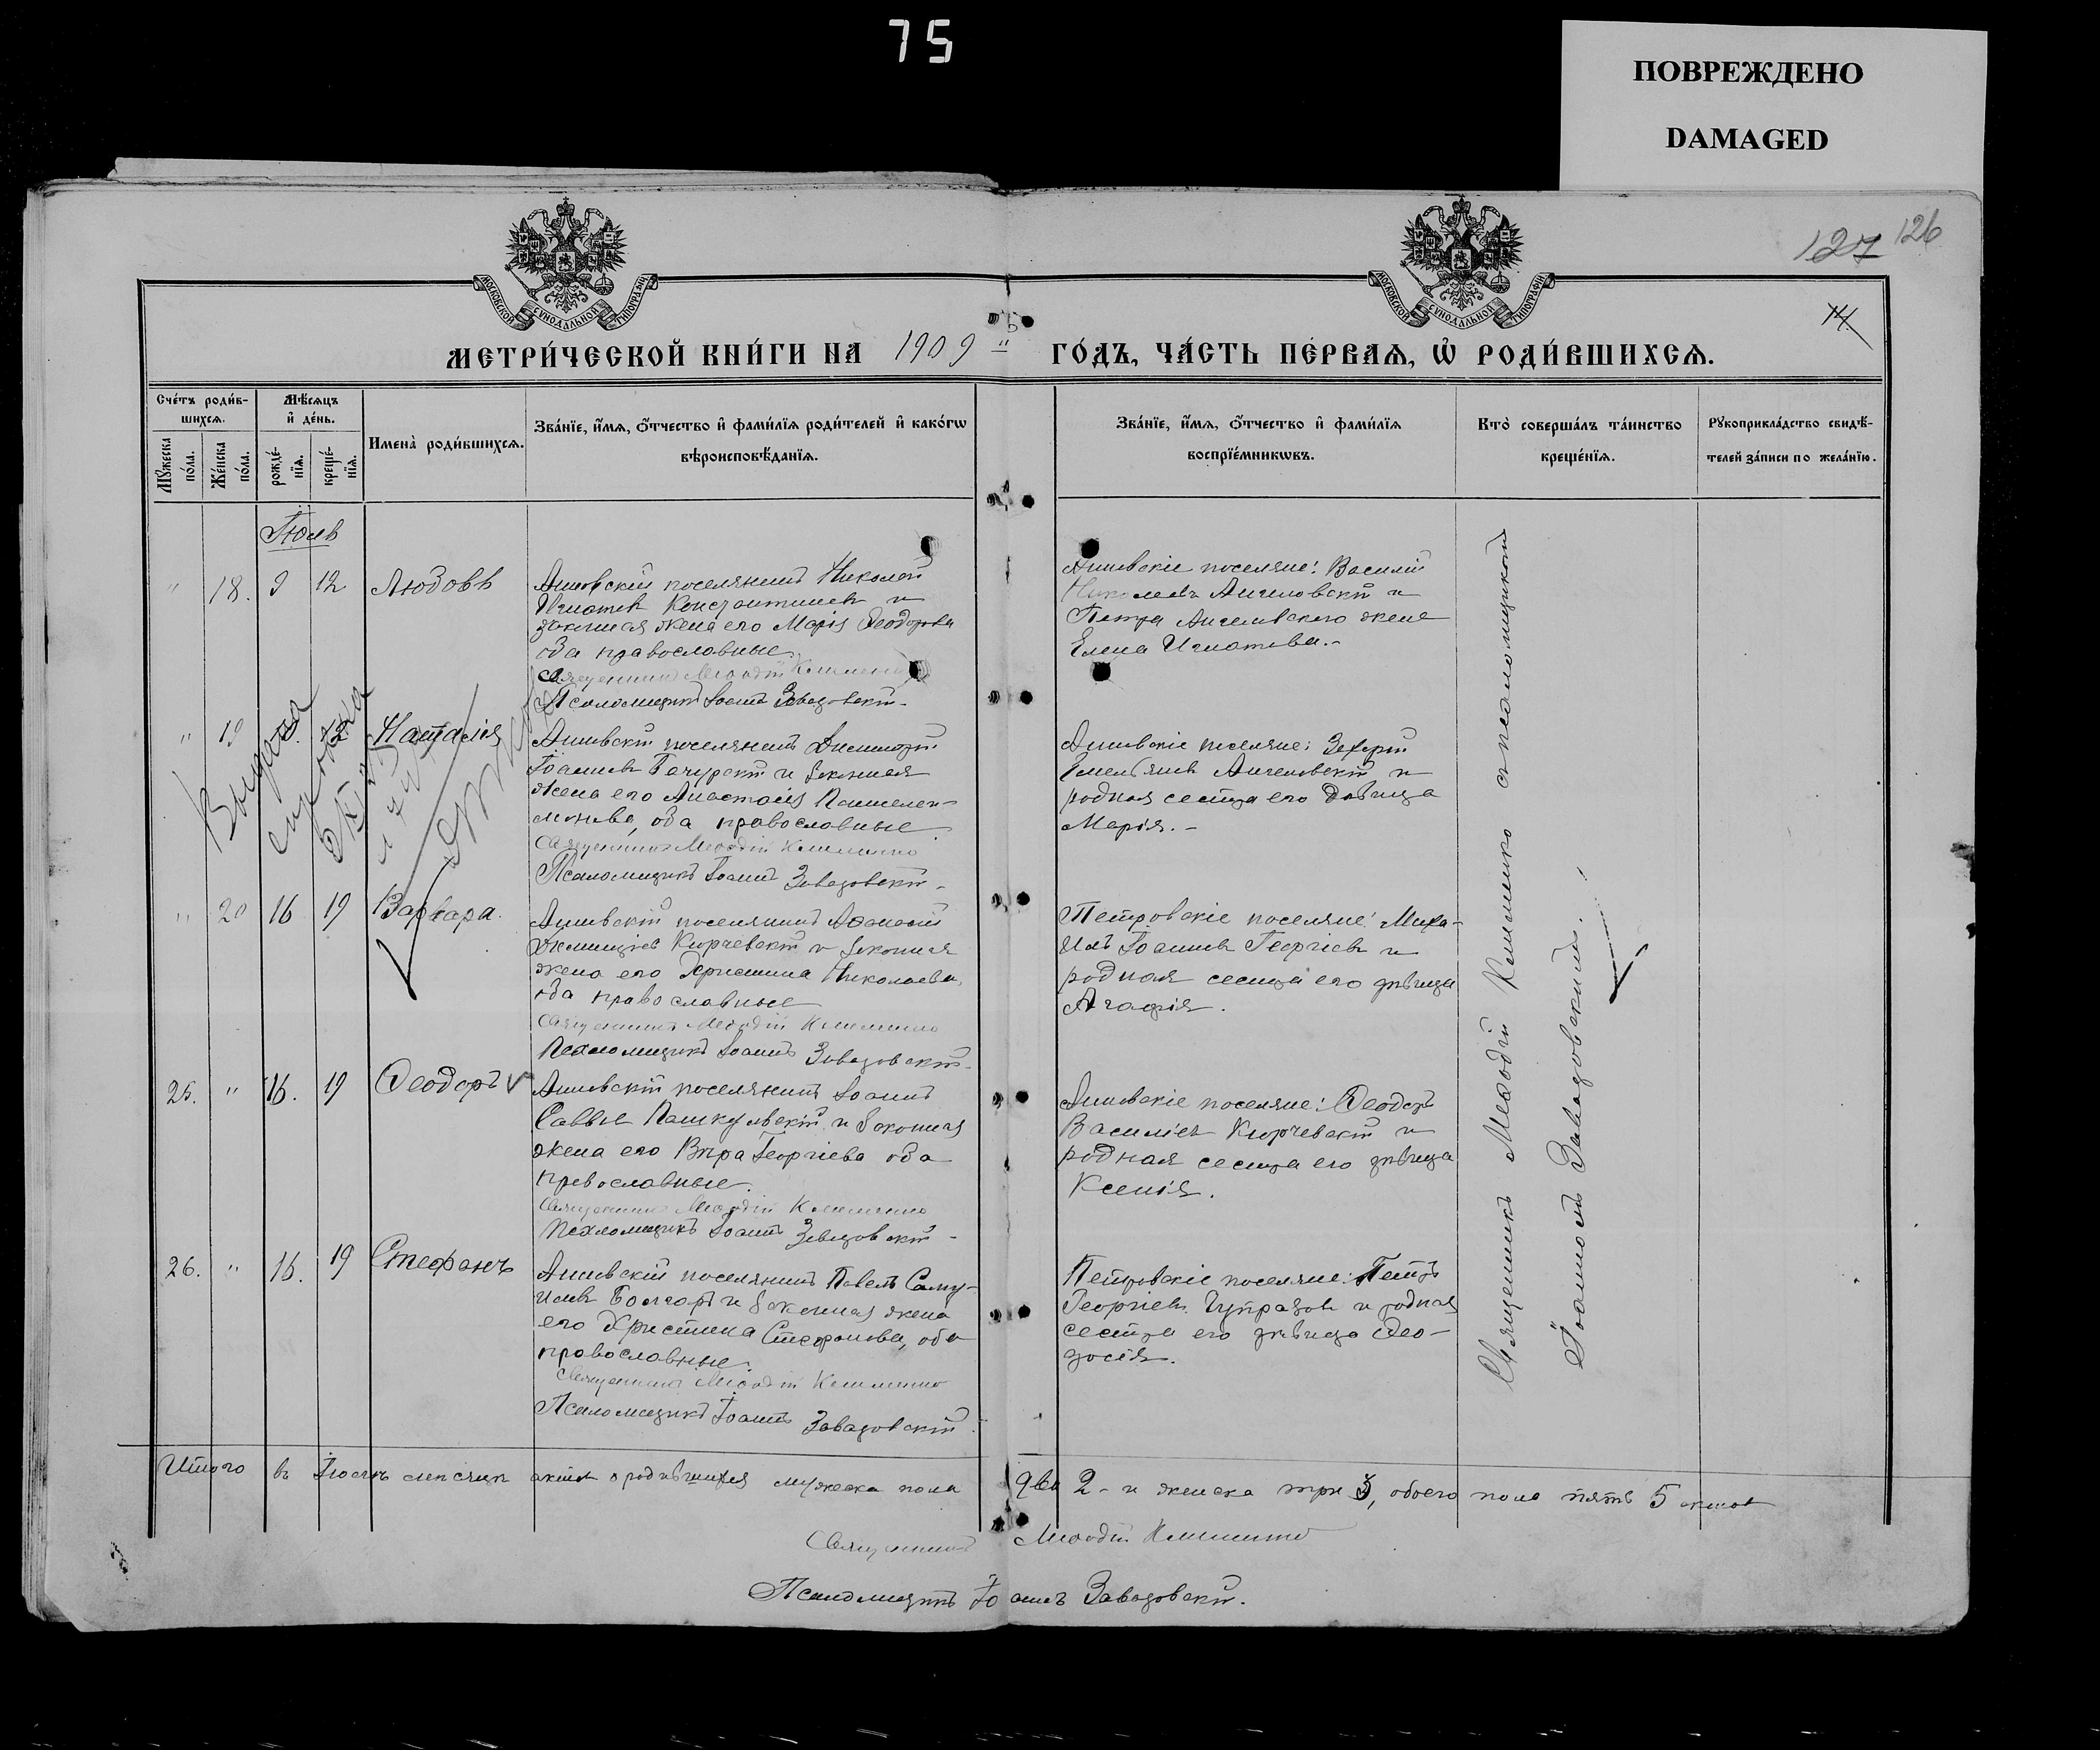 75
ПОВРЕЖДЕНО
DAMAGED
127 126
14
МОСКОВСКОЙ СѴНОДАЛЬНОЙ ТИПОГРАФІИ
МОСКОВСКОЙ СѴНОДАЛЬНОЙ ТИПОГРАФІИ
МЕТРИ́ЧЕСКОЙ КНИ́ГИ НА 1909 ГО́ДЪ, ЧА́СТЬ ПЕ́РВАѦ, Ѽ РОДИ́ВШИХСѦ.
Сче́тъ роди́в-
шихсѧ.
Мꙋ́жеска по́ла.
Же́нска по́ла.
Мѣ́сѧцъ
и҆ де́нь.
рожде́-
нїѧ.
креще́-
нїѧ.
Имена̀ роди́вшихсѧ.
Зва́нїе, и҆́мѧ, ѻ҆́тчество и҆ фами́лїѧ роди́телей и҆ како́гѡ
вѣроисповѣ́данїѧ.
Зва́нїе, и҆́мѧ, ѻ҆́тчество и҆ фами́лїѧ
воспрїе́мникѡвъ.
Кто̀ соверша́лъ та́инство
креще́нїѧ.
Рꙋкоприкла́дство свидѣ́-
телей за́писи по жела́нїю.
Іюль
" 18. 9 12 Любовь
поселянинъ Николай
Игнатіевъ Константиновъ и
законная жена его Марія Ѳеодорова
оба православные.
Священникъ Меѳодій Клименко
Псаломщикъ Іоаннъ Завадовскій
поселяне: Василій
Николаевъ Ангеловскій и
Петра Ангеловскаго жена
Елена Игнатова.-
" 19 12 Наталія
поселянинъ Димитрій
Іоанновъ и законная
жена его Анастасія Пантелеи-
монова, оба православные.
Священникъ Меѳодій Клименко
Псаломщикъ Іоаннъ Завадовскій
поселяне: Захарій
Ангеловскій и
родная сестра его дѣвица
Марія.-
Выдана
" 20 16 19 Варвара.
поселянинъ Аѳанасій
Димитріевъ Кюрчевскій и законная
жена его Христина Николаева,
оба православные
Священникъ Меѳодій Клименко
Псаломщикъ Іоаннъ Завадовскій
Петровскіе поселяне: Миха-
илъ Іоанновъ Георгіевъ и
родная сестра его дѣвица
Агафія.
25. " 16. 19 Ѳеодоръ
поселянинъ Іоаннъ
Саввы Пашкуловскій и законная
жена его Вѣра Георгіева оба
православные.
Священникъ Меѳодій Клименко
Псаломщикъ Іоаннъ Завадовскій
поселяне: Ѳеодоръ
Василіевъ Кюрчевскій и
родная сестра его дѣвица
Ксенія.
26. " 16. 19 Стефанъ
поселянинъ Павелъ Саму-
иловъ Болгаръ и законная жена
его Христина Стефанова, оба
православные.
Священникъ Меѳодій Клименко
Псаломщикъ Іоаннъ Завадовскій
Петровскіе поселяне: Петръ
Георгіевъ и родная
сестра его дѣвица Ѳео-
досія.
Священникъ Меѳодій Клименко съ псаломщикомъ
Іоанномъ Завадовскимъ.
Итого въ Іюлѣ мѣсяцѣ актовъ о родившихся мужеска пола два 2 - и женска три 3, обоего пола пять 5 актовъ
Священникъ Меѳодій Клименко
Псаломщикъ Іоаннъ Завадовскій.